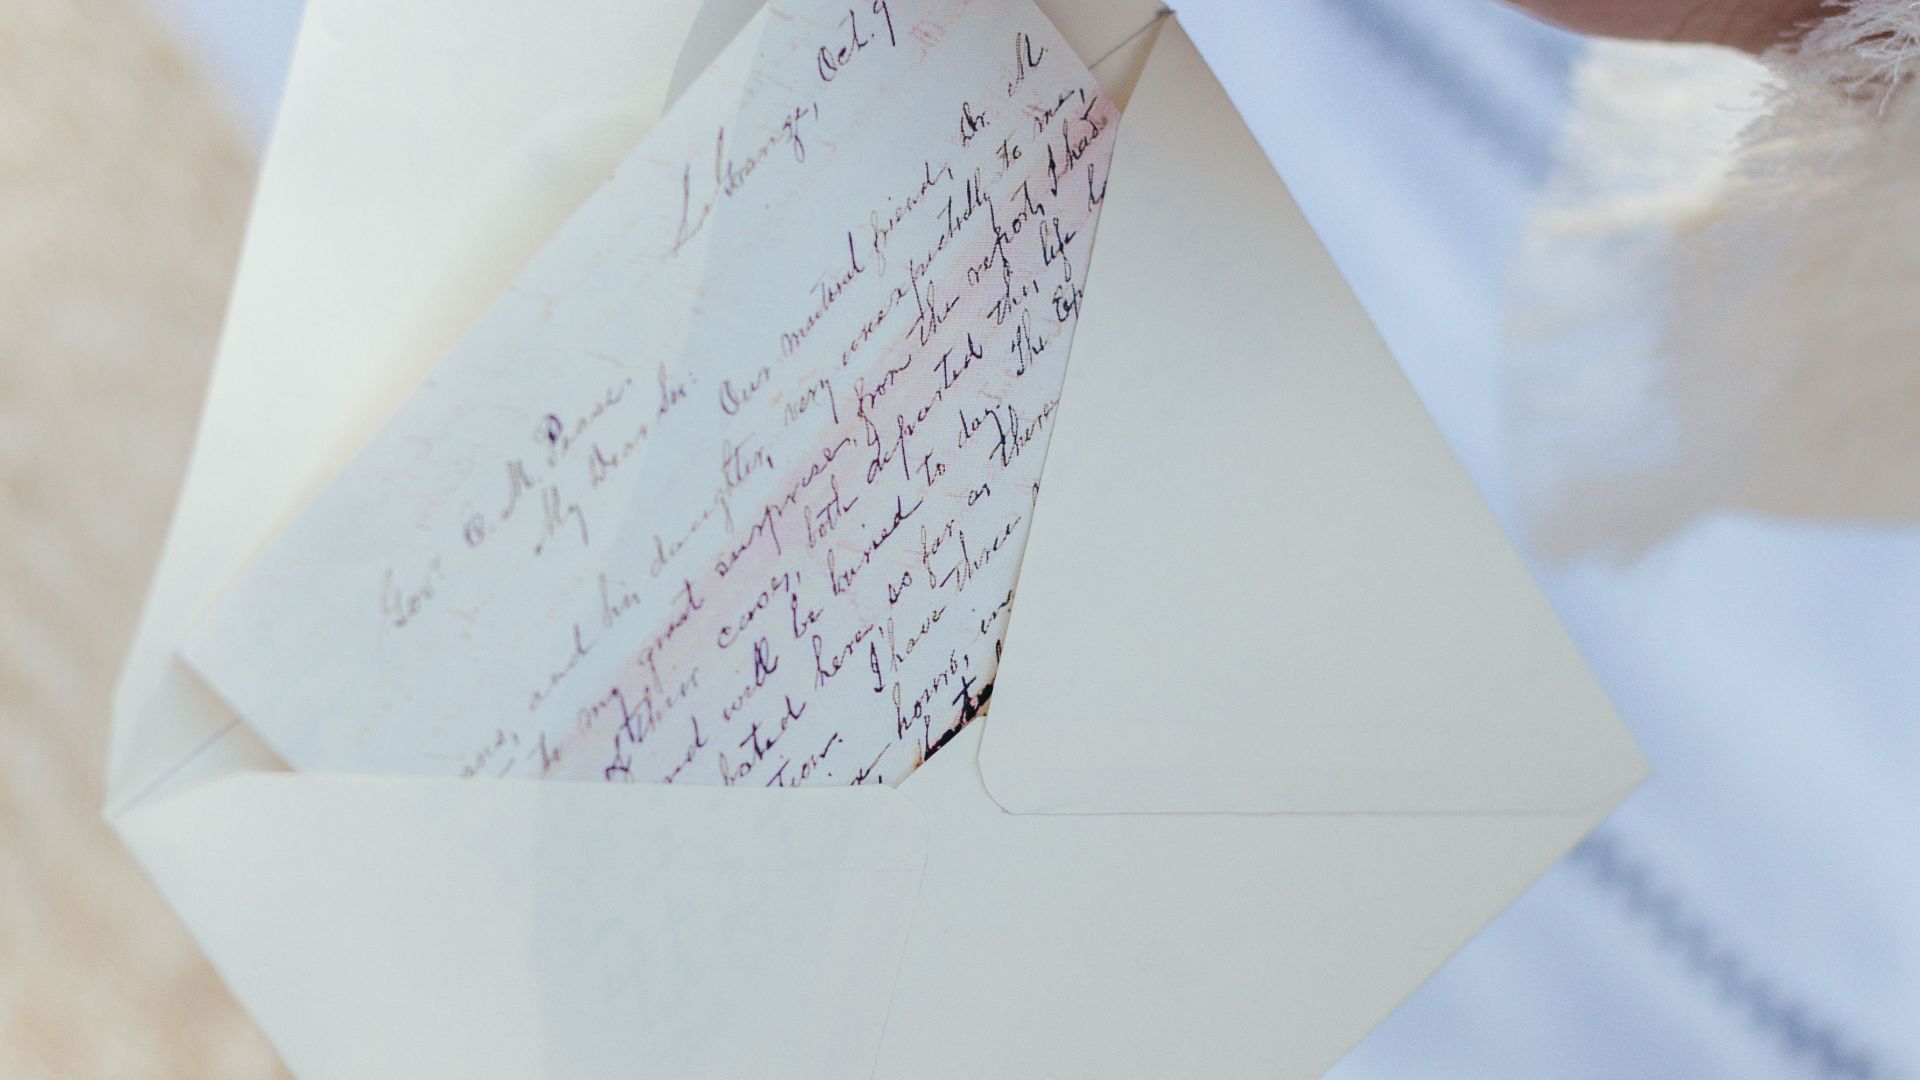 La Grange, Oct. 9
Gov. E. M. Pease.
My Dear Sir: Our mutual friend, Dr. M
and his daughter, very unexpectedly to me,
to my great surprise, from the report, I had
of their cases, both departed this life
and will be buried to day. The Ep
bated here, so far as there
tion. I have three
home, in